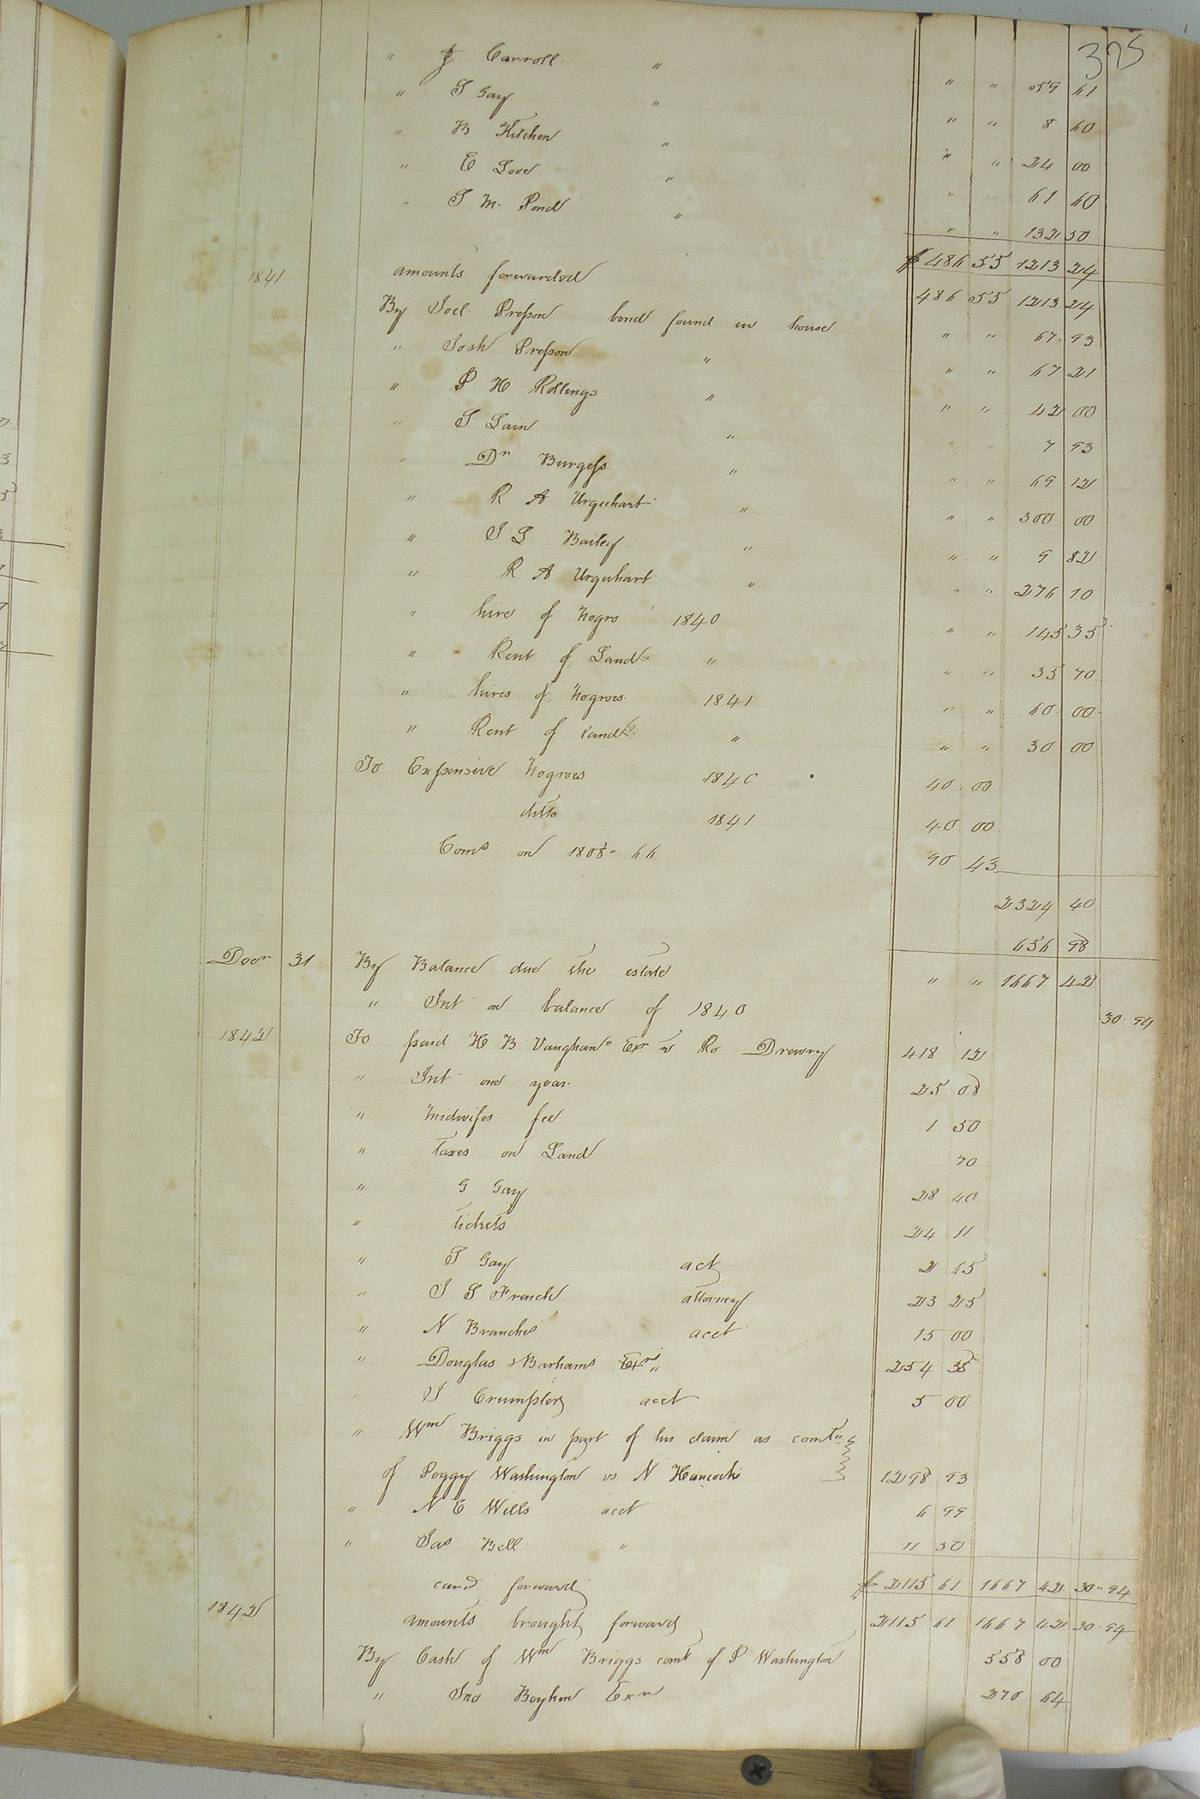 375
" J Carroll " " " 59 61
" T Gay " " " 8 60
" B Kitchen " " " 24 00
" E Love " " " 61 60
" T M. Pond " " " 132 50
1841 amounts forwarded $ 486 55 1213 24
486 55 1213 24
By Joel Presson bond found in house " " 67 93
" Josh Presson " " " 67 21
" P H Rollings " " " 42 00
" T Lain " " " 7 93
" Dr Burgess " " " 69 12
" R A Urquhart " " " 300 00
" J L Bailey " " " 9 82
" R A Urquhart " " " 276 10
" hire of Negro 1840 " " 145 35
" Rent of Land " " " 35 70
" hires of Negroes 1841 " " 60 00
" Rent of Land " " " 30 00
To Expensive Negroes 1840 40 00
ditto 1841 40 00
Coms on 1808.66 90 43
2324 40
656 98
Decr 31 By Balance due the estate " " 1667 42
" Int on balance of 1840 30.94
1842 To paid H B Vaughan Exr vs Ro Drewry 418 12
" Int one year 25 08
" Midwifes fee 1 50
" Taxes on Land 70
" G Gay 28 40
" Tickets 24 11
" T Gay act 2 65
" S S French attorney 23 25
" N Branche acct 15 00
" Douglas & Barhams Exrs " 254 35
" Crumpler acct 5 00
" Wm Briggs in part of his claim as comte
of Peggy Washington vs N Hancocks 1298 93
" N E Wills acct 6 99
" Jas Bell " 11 50
card forward $ 2115 61 1667 42 30.94
1842 amounts brought forward 2115 61 1667 42 30.94
By Cash of Wm Briggs comt of P Washington 558 00
" Jno Boykin Exr 270 64